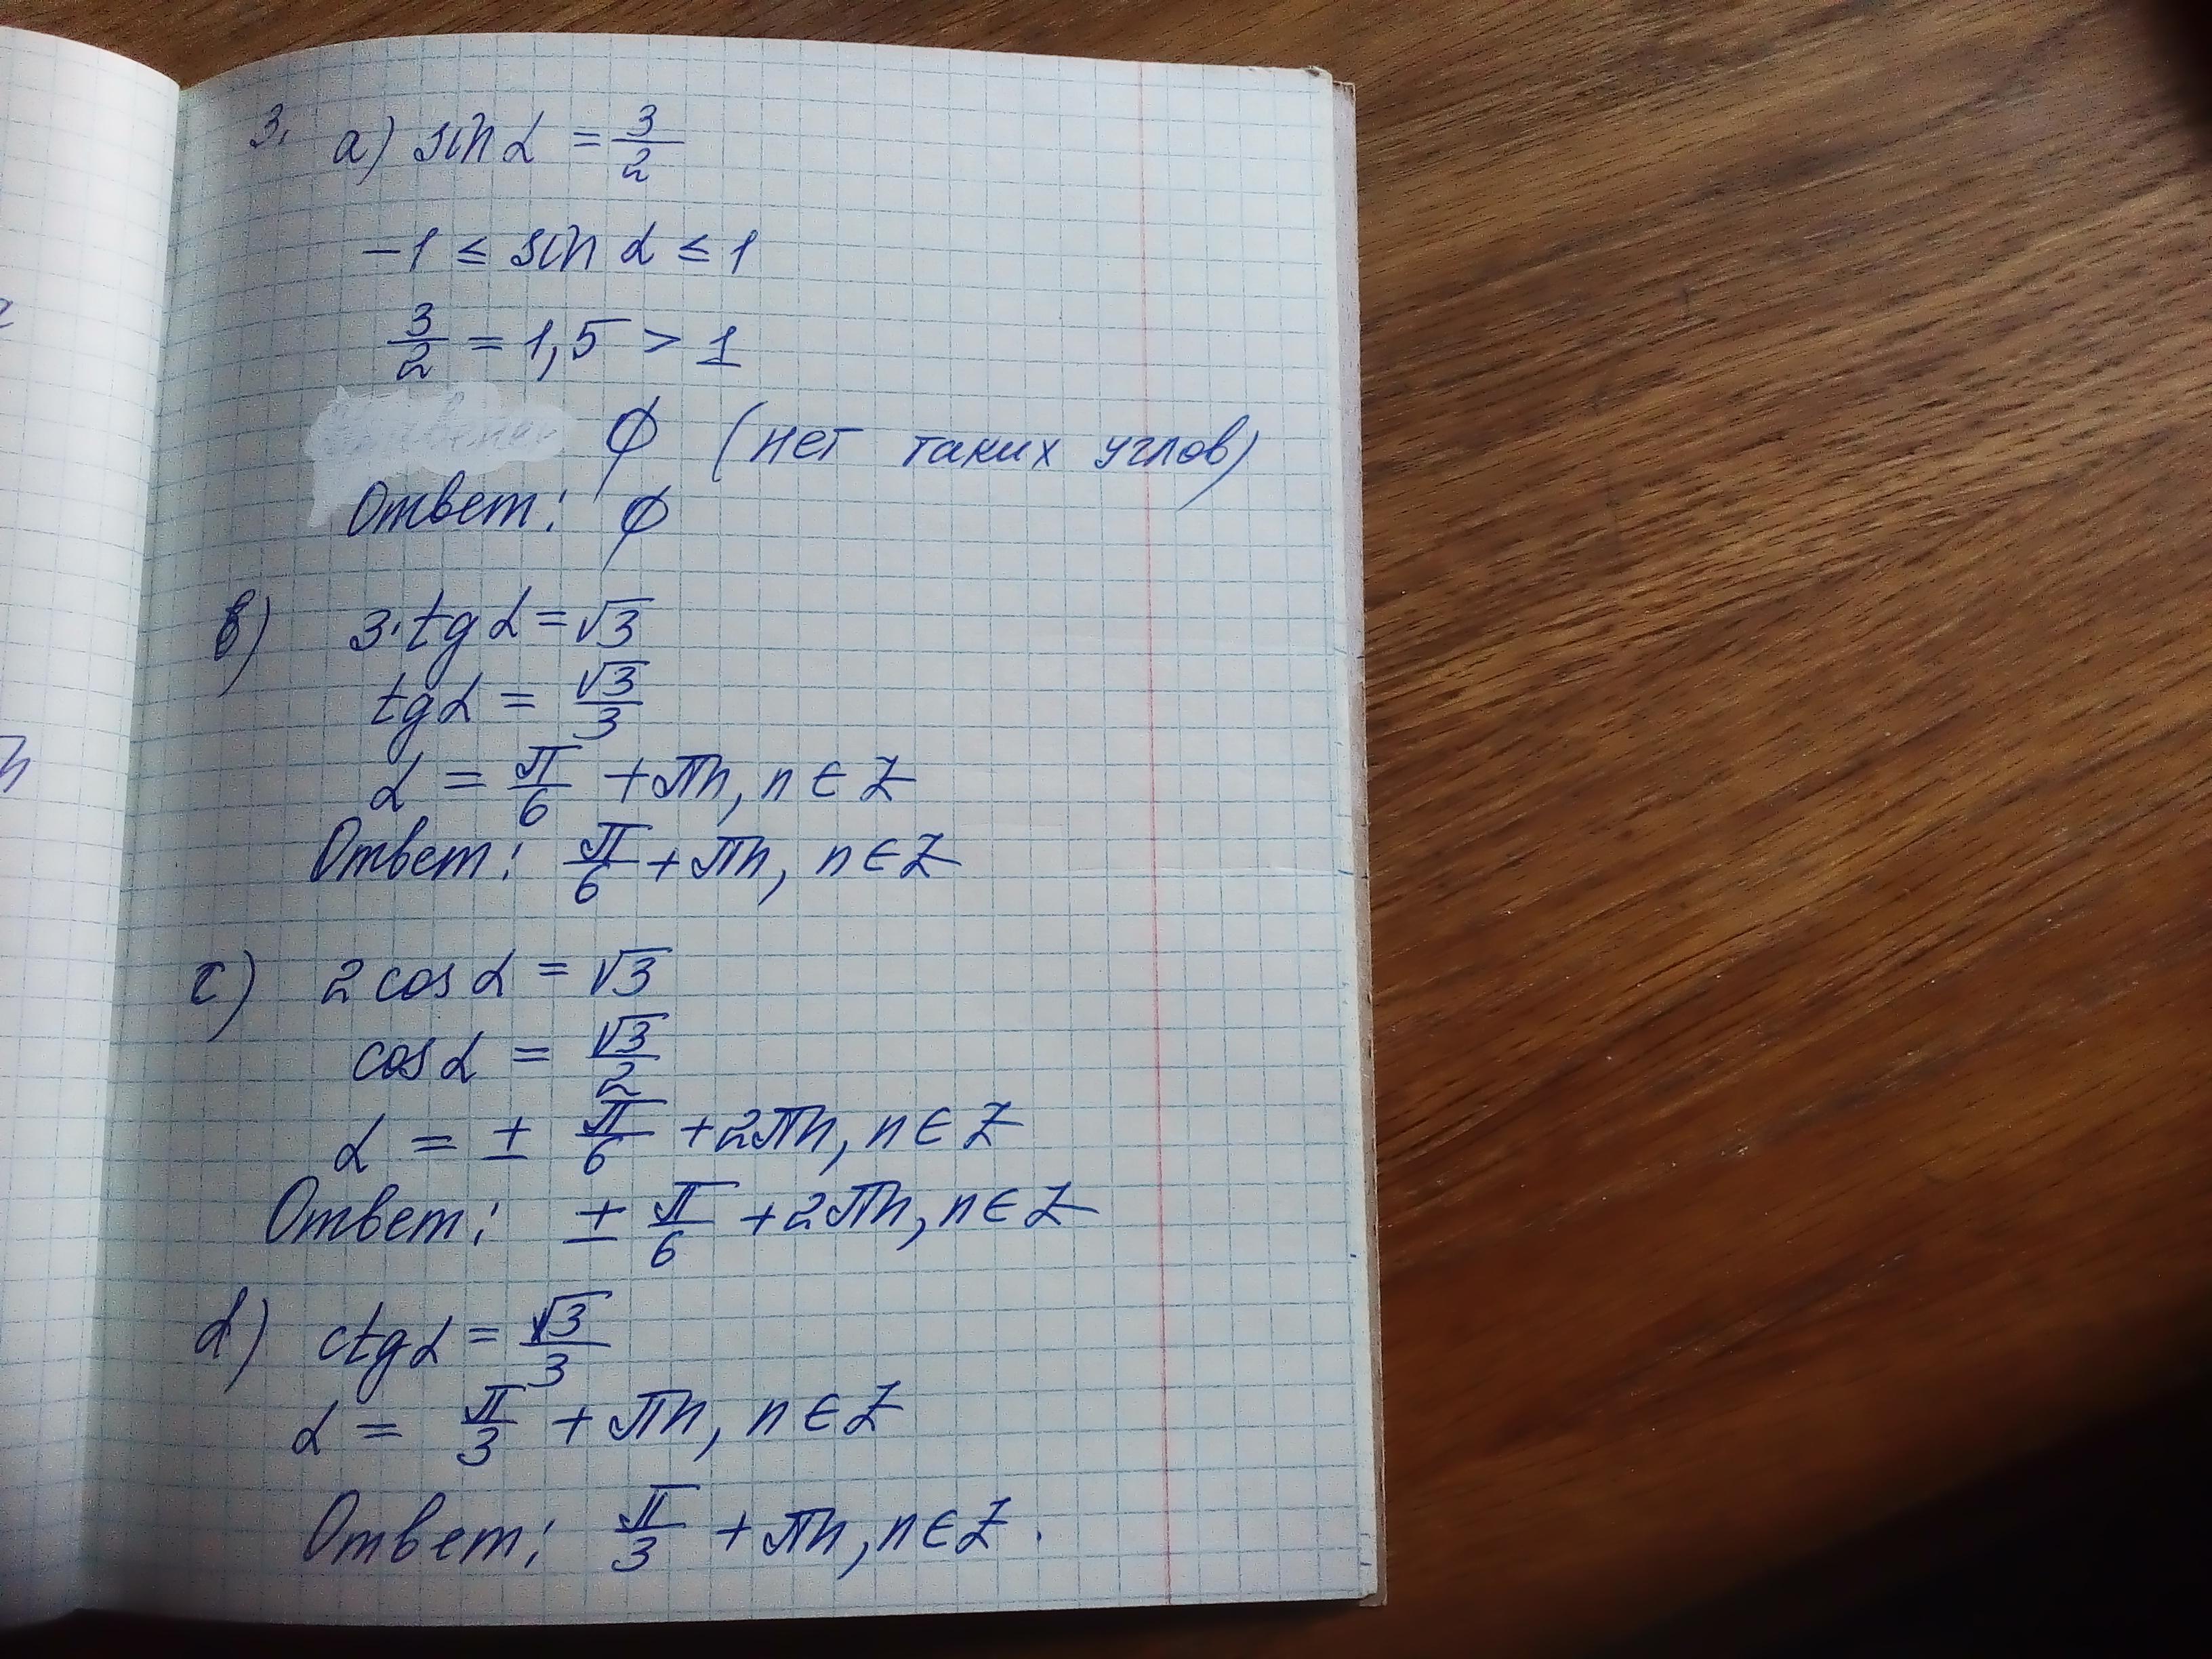 3. a) sin α = 3/2
-1 ≤ sin α ≤ 1
3/2 = 1,5 > 1
∅ (нет таких углов)
Ответ: ∅
в) 3·tg α = √3
tg α = √3/3
α = π/6 + πn, n ∈ Z
Ответ: π/6 + πn, n ∈ Z
c) 2 cos α = √3
cos α = √3/2
α = ± π/6 + 2πn, n ∈ Z
Ответ: ± π/6 + 2πn, n ∈ Z
d) ctg α = √3/3
α = π/3 + πn, n ∈ Z
Ответ: π/3 + πn, n ∈ Z.